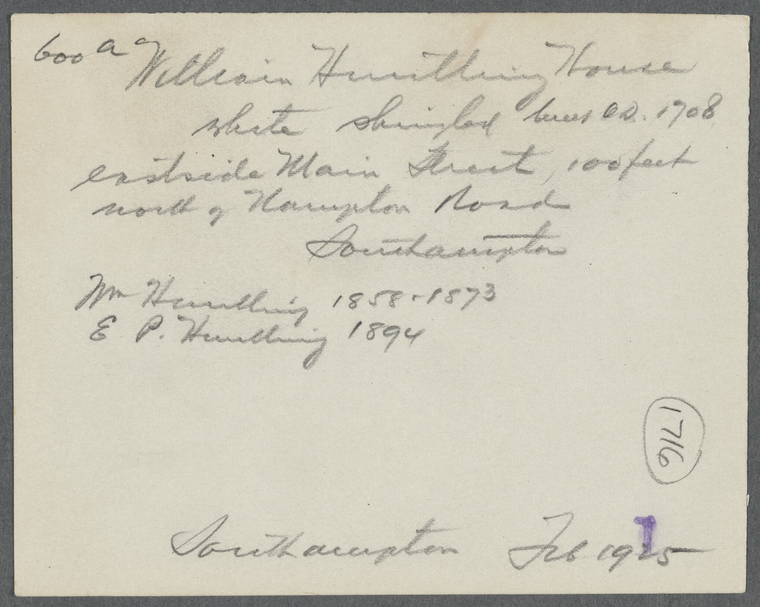 600 a
William Huntting House
white shingled built A.D. 1708
eastside Main Street, 100 feet
north of Hampton Road
Southampton
Wm Huntting 1858-1873
E P. Huntting 1894
1716
Southampton Feb 1925